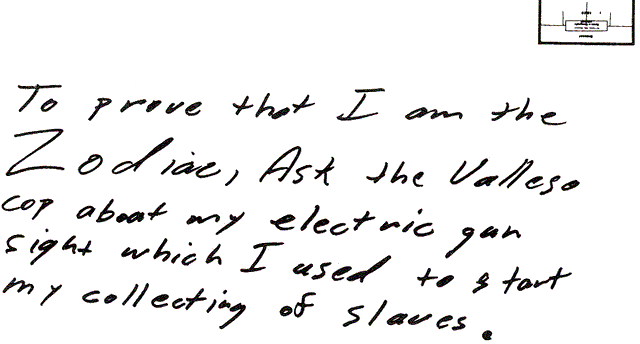 To prove that I am the
Zodiac, Ask the Vallejo
cop about my electric gun
sight which I used to start
my collecting of slaves.